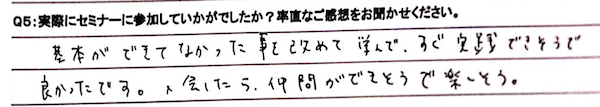 Q5：実際にセミナーに参加していかがでしたか？率直なご感想をお聞かせください。
基本ができてなかった事を改めて学んで、すぐ実践できそうで
良かったです。入会したら、仲間ができそうで楽しそう。